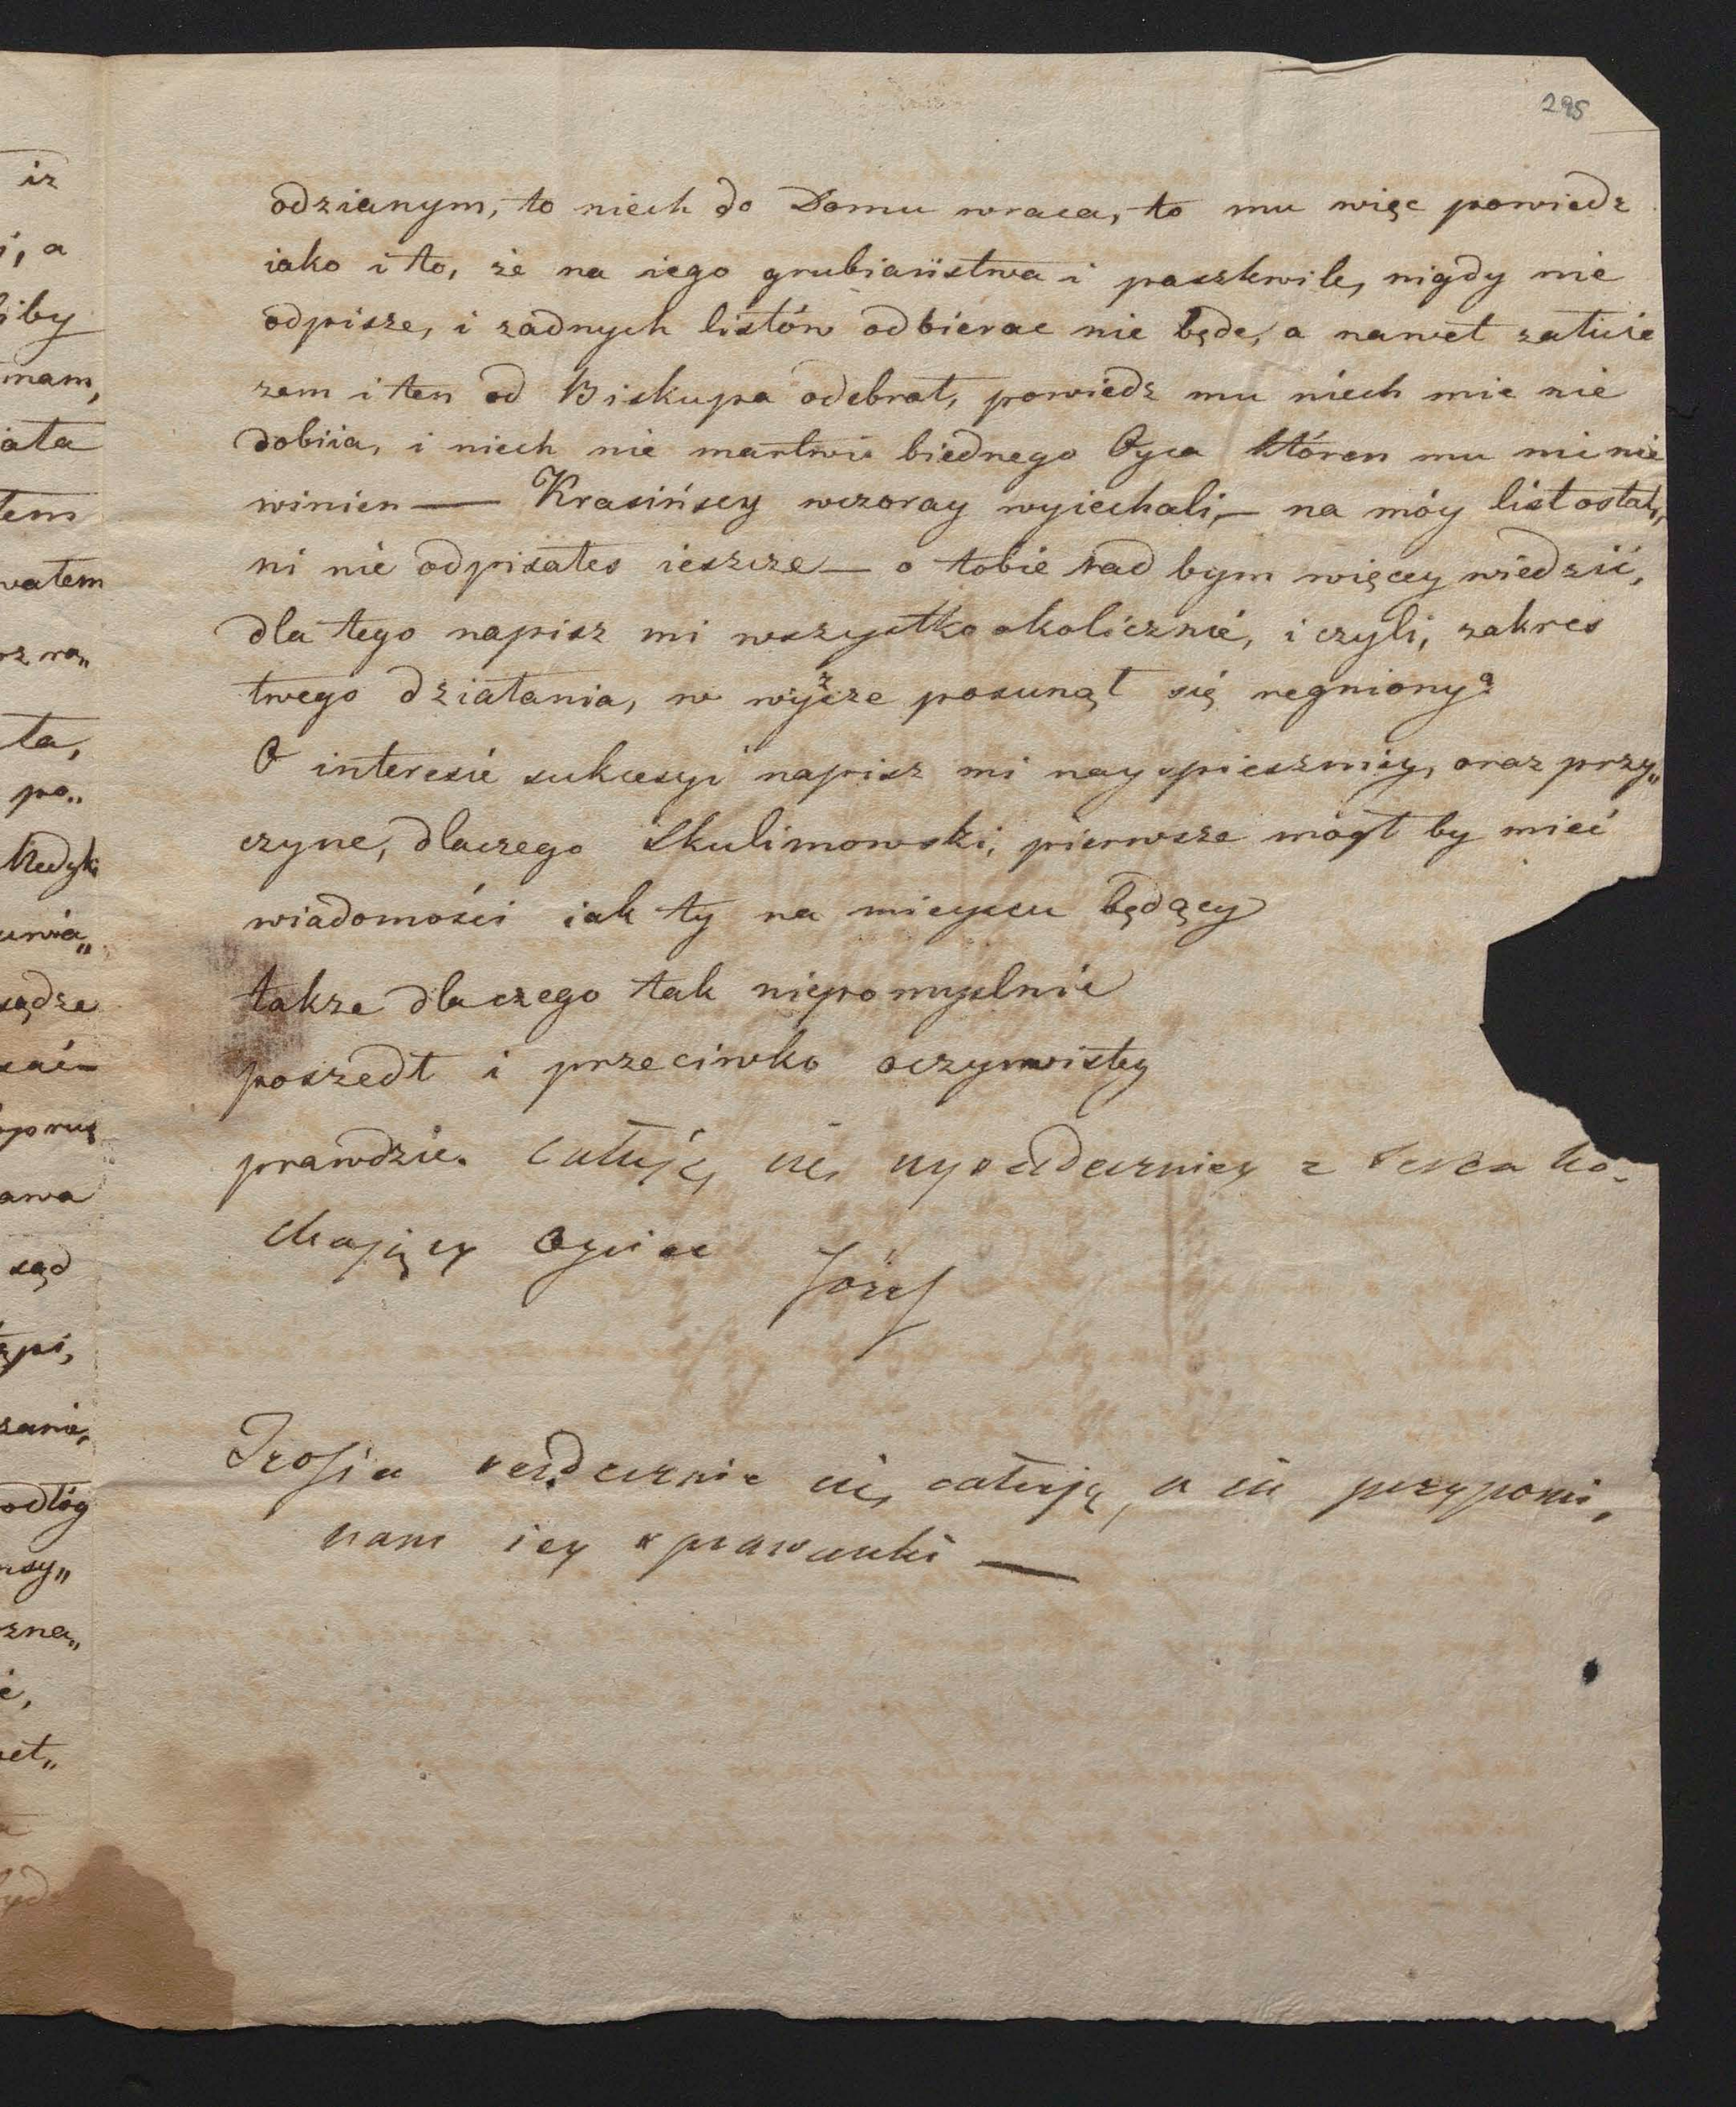 295
odzianym, to niech do Domu wraca, to mu więc powiedz
iako i to, że na iego grubiaństwa i paszkwile, nigdy nie
odpisze, i żadnych listów odbierac nie będe, a nawet załuie
zem i ten od Biskupa odebrał, powiedz mu niech mie nie
dobiia, i niech nie martwi biednego Oyca któren mu ni nie
winien — Krasińscy wczoray wyiechali, — na móy list ostat„
ni nie odpisałes ieszcze — o tobie rad bym więcey wiedzić,
dla tego napisz mi wszystko okolicznie, i czyli, zakres
twego działania, w wyższe posunął się regniony?
O interesie sukcesyi napisz mi nayspieszniey, oraz przy„
czyne, dlaczego Skulimowski, pierwsze mógł by mieć
wiadomości iak ty na mieyscu będący
także dlaczego tak niepomyslnie
poszedł i przeciwko oczywistey
prawdzie. Całuję cię nyserdeczniey z serca ko„
chający Oyciec
Józef
Zrosia serdecznie cię całuję, a ia przypomi„
nam iey sprawunki —
iz
i, a
iby
mam,
iata
tem
wałem
rz ro„
ta,
po„
Medyk
sądze
awa
sąd
odłóg
zna„